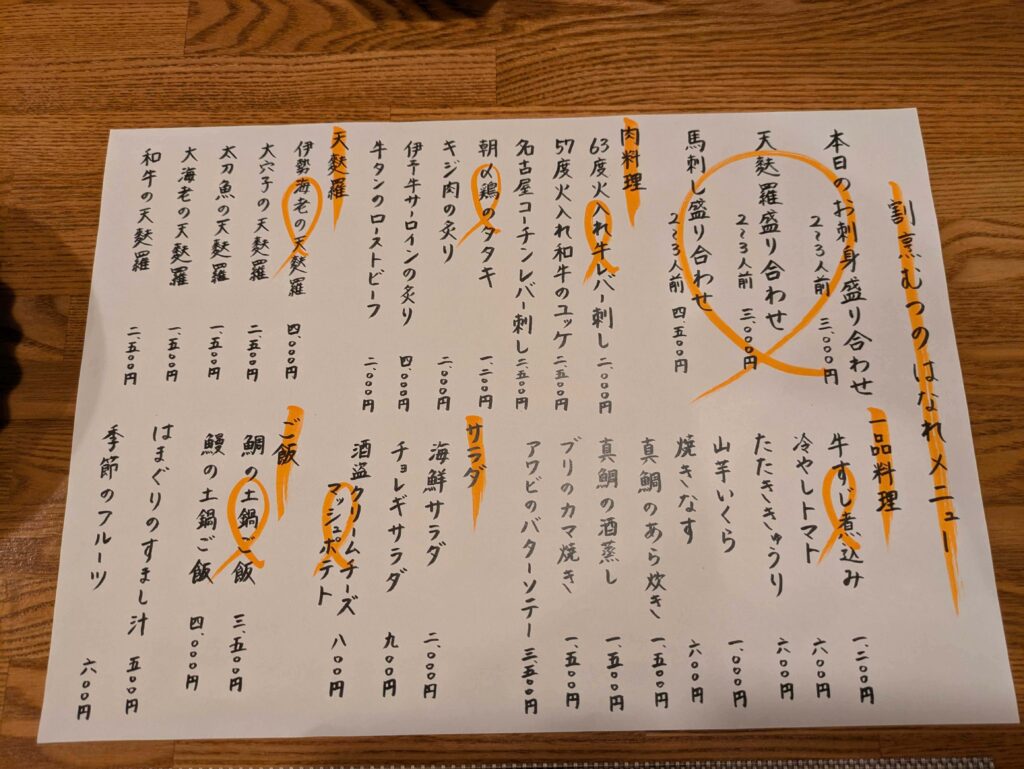 割烹むつのはなれメニュー
本日のお刺身盛り合わせ
2~3人前 三、〇〇〇円
天麩羅盛り合わせ
2~3人前 三、〇〇〇円
馬刺し盛り合わせ
2~3人前 四、五〇〇円
肉料理
63度火入れ牛レバー刺し 二、〇〇〇円
57度火入れ和牛のユッケ 二、五〇〇円
名古屋コーチンレバー刺し 二、五〇〇円
朝〆鶏のタタキ 一、二〇〇円
キジ肉の炙り 二、〇〇〇円
伊予牛サーロインの炙り 四、〇〇〇円
牛タンのローストビーフ 二、〇〇〇円
天麩羅
伊勢海老の天麩羅 四、〇〇〇円
大穴子の天麩羅 二、五〇〇円
太刀魚の天麩羅 一、五〇〇円
大海老の天麩羅 一、五〇〇円
和牛の天麩羅 二、五〇〇円
一品料理
牛すじ煮込み 一、二〇〇円
冷やしトマト 六〇〇円
たたききゅうり 六〇〇円
山芋いくら 一、〇〇〇円
焼きなす 六〇〇円
真鯛のあら炊き 一、五〇〇円
真鯛の酒蒸し 一、五〇〇円
ブリのカマ焼き 一、五〇〇円
アワビのバターソテー 三、五〇〇円
サラダ
海鮮サラダ 二、〇〇〇円
チョレギサラダ 九〇〇円
酒盗クリームチーズ
マッシュポテト 八〇〇円
ご飯
鯛の土鍋ご飯 三、五〇〇円
鰻の土鍋ご飯 四、〇〇〇円
はまぐりのすまし汁 五〇〇円
季節のフルーツ 六〇〇円